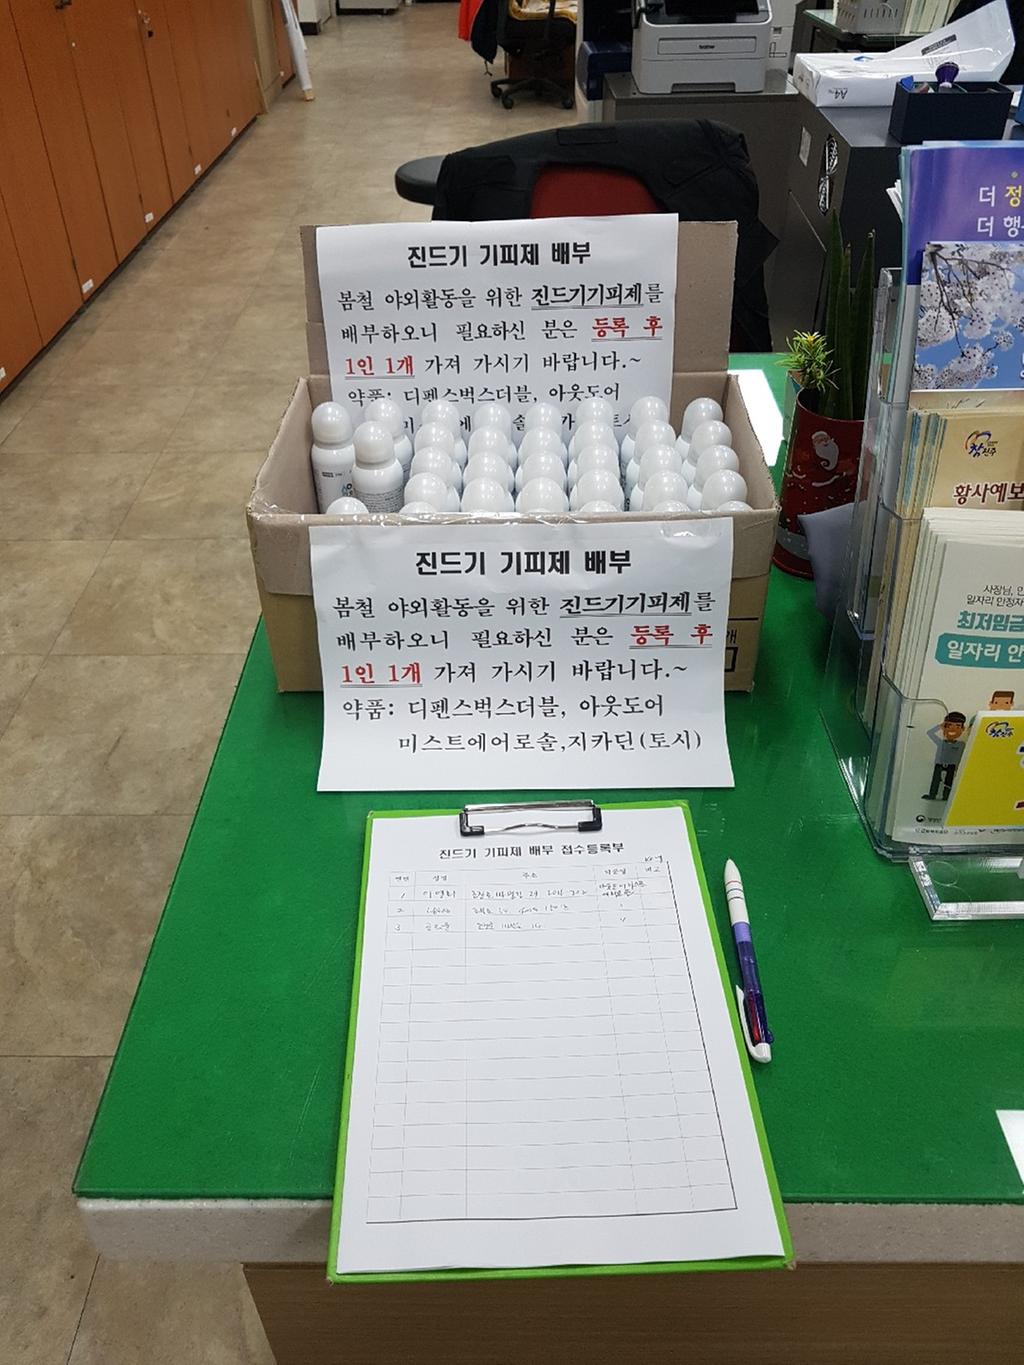 brother
A4
더 정
더 행
진드기 기피제 배부
봄철 야외활동을 위한 진드기기피제를
배부하오니 필요하신 분은 등록 후
1인 1개 가져 가시기 바랍니다.~
약품: 디펜스벅스더블, 아웃도어
참진주
황사예보
진드기 기피제 배부
봄철 야외활동을 위한 진드기기피제를
배부하오니 필요하신 분은 등록 후
1인 1개 가져 가시기 바랍니다.~
약품: 디펜스벅스더블, 아웃도어
미스트에어로솔,지카딘(토시)
사장님,
일자리 안정자
최저임금
일자리 안
진드기 기피제 배부 접수등록부
연번 성명 주소 비고
1
2
3